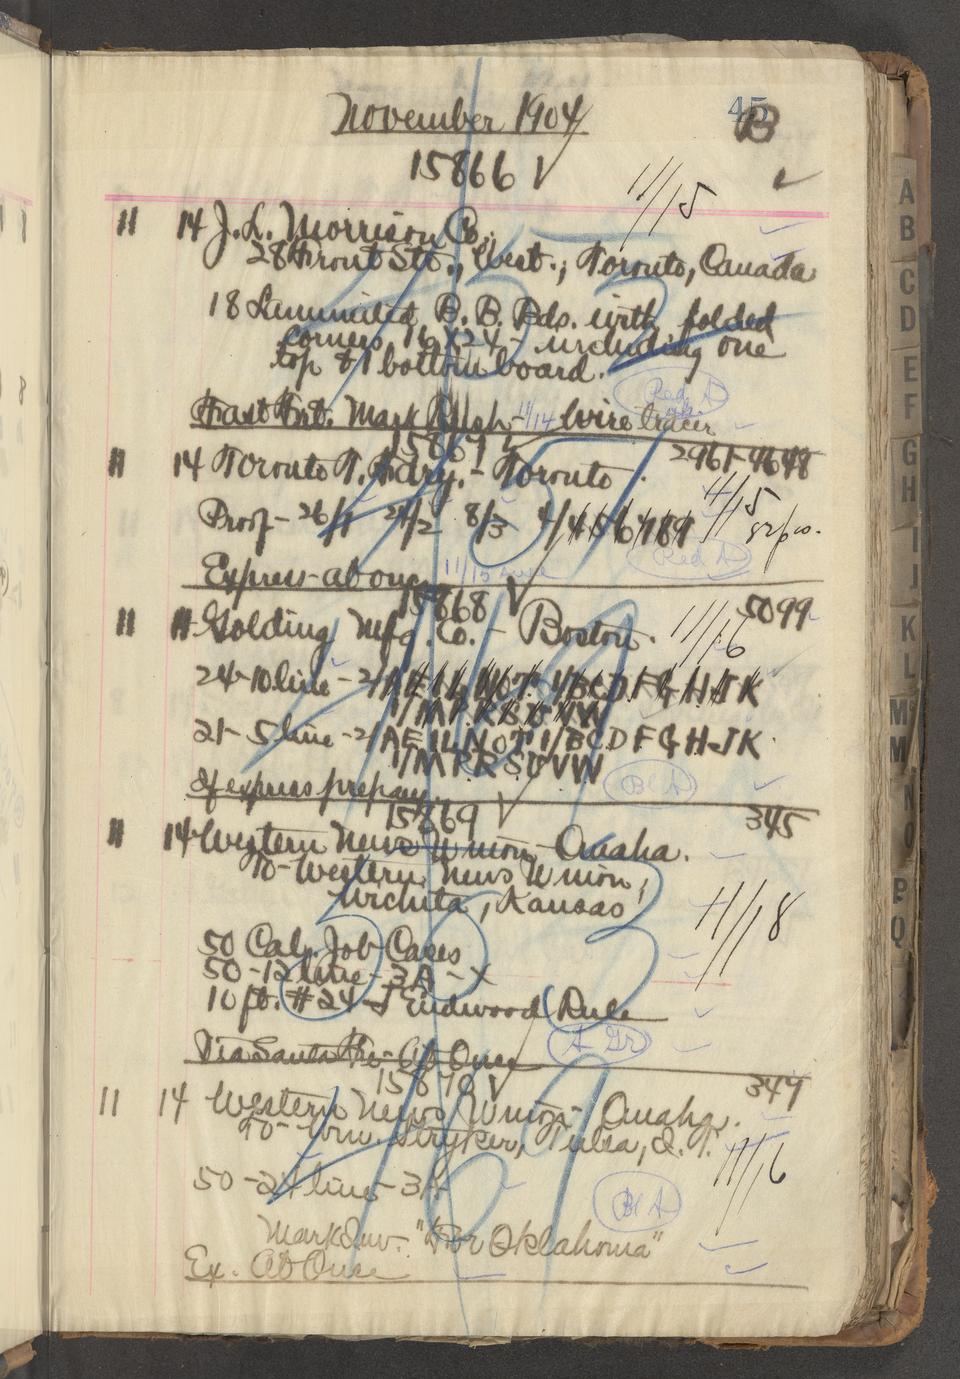 November 1904
45
B
15866 ✓
11/15
11 14 J. L. Morrison Co.,
28 Front St., West., Toronto, Canada
18 Laminated B. B. Bds. with folded
corners 16 x 24 - including one
top & 1 bottom board.
Red A
Fast Frt. Mark Rush - 11/14 wire tracer
15867 ✓
2961-4648
11 14 Toronto T. Fdry. - Toronto.
11/15
Proof - 26/1 24/2 8/3 4/4 5 6 7 8 9
Red A
Express - at once
15868 ✓
5099
11 14 Golding Mfg. Co. - Boston.
11/16
24-10 line - 2/A E I L N O T 1/B C D F G H J K
1/M P R S U V W
21-5 line - 2/A E I L N O T 1/B C D F G H J K
1/M P R S U V W
Bl A
If express prepay.
15869 ✓
345
11 14 Western News Union, Omaha.
To - Western News Union,
Wichita, Kansas
11/18
50 Cal. Job Cases
50-12 line - 3A - X
10 ft. #24 - J Endwood Rule
A Gr
Via Santa Fe - At Once
15870 ✓
349
11 14 Western News Union - Omaha.
To - Wm. Stryker, Tulsa, I. T.
11/16
50-24 line - 3A
Bl A
Mark Inv. "For Oklahoma"
Ex. At Once
A
B
C
D
E
F
G
H
I
J
K
L
M
M
N
O
P
Q